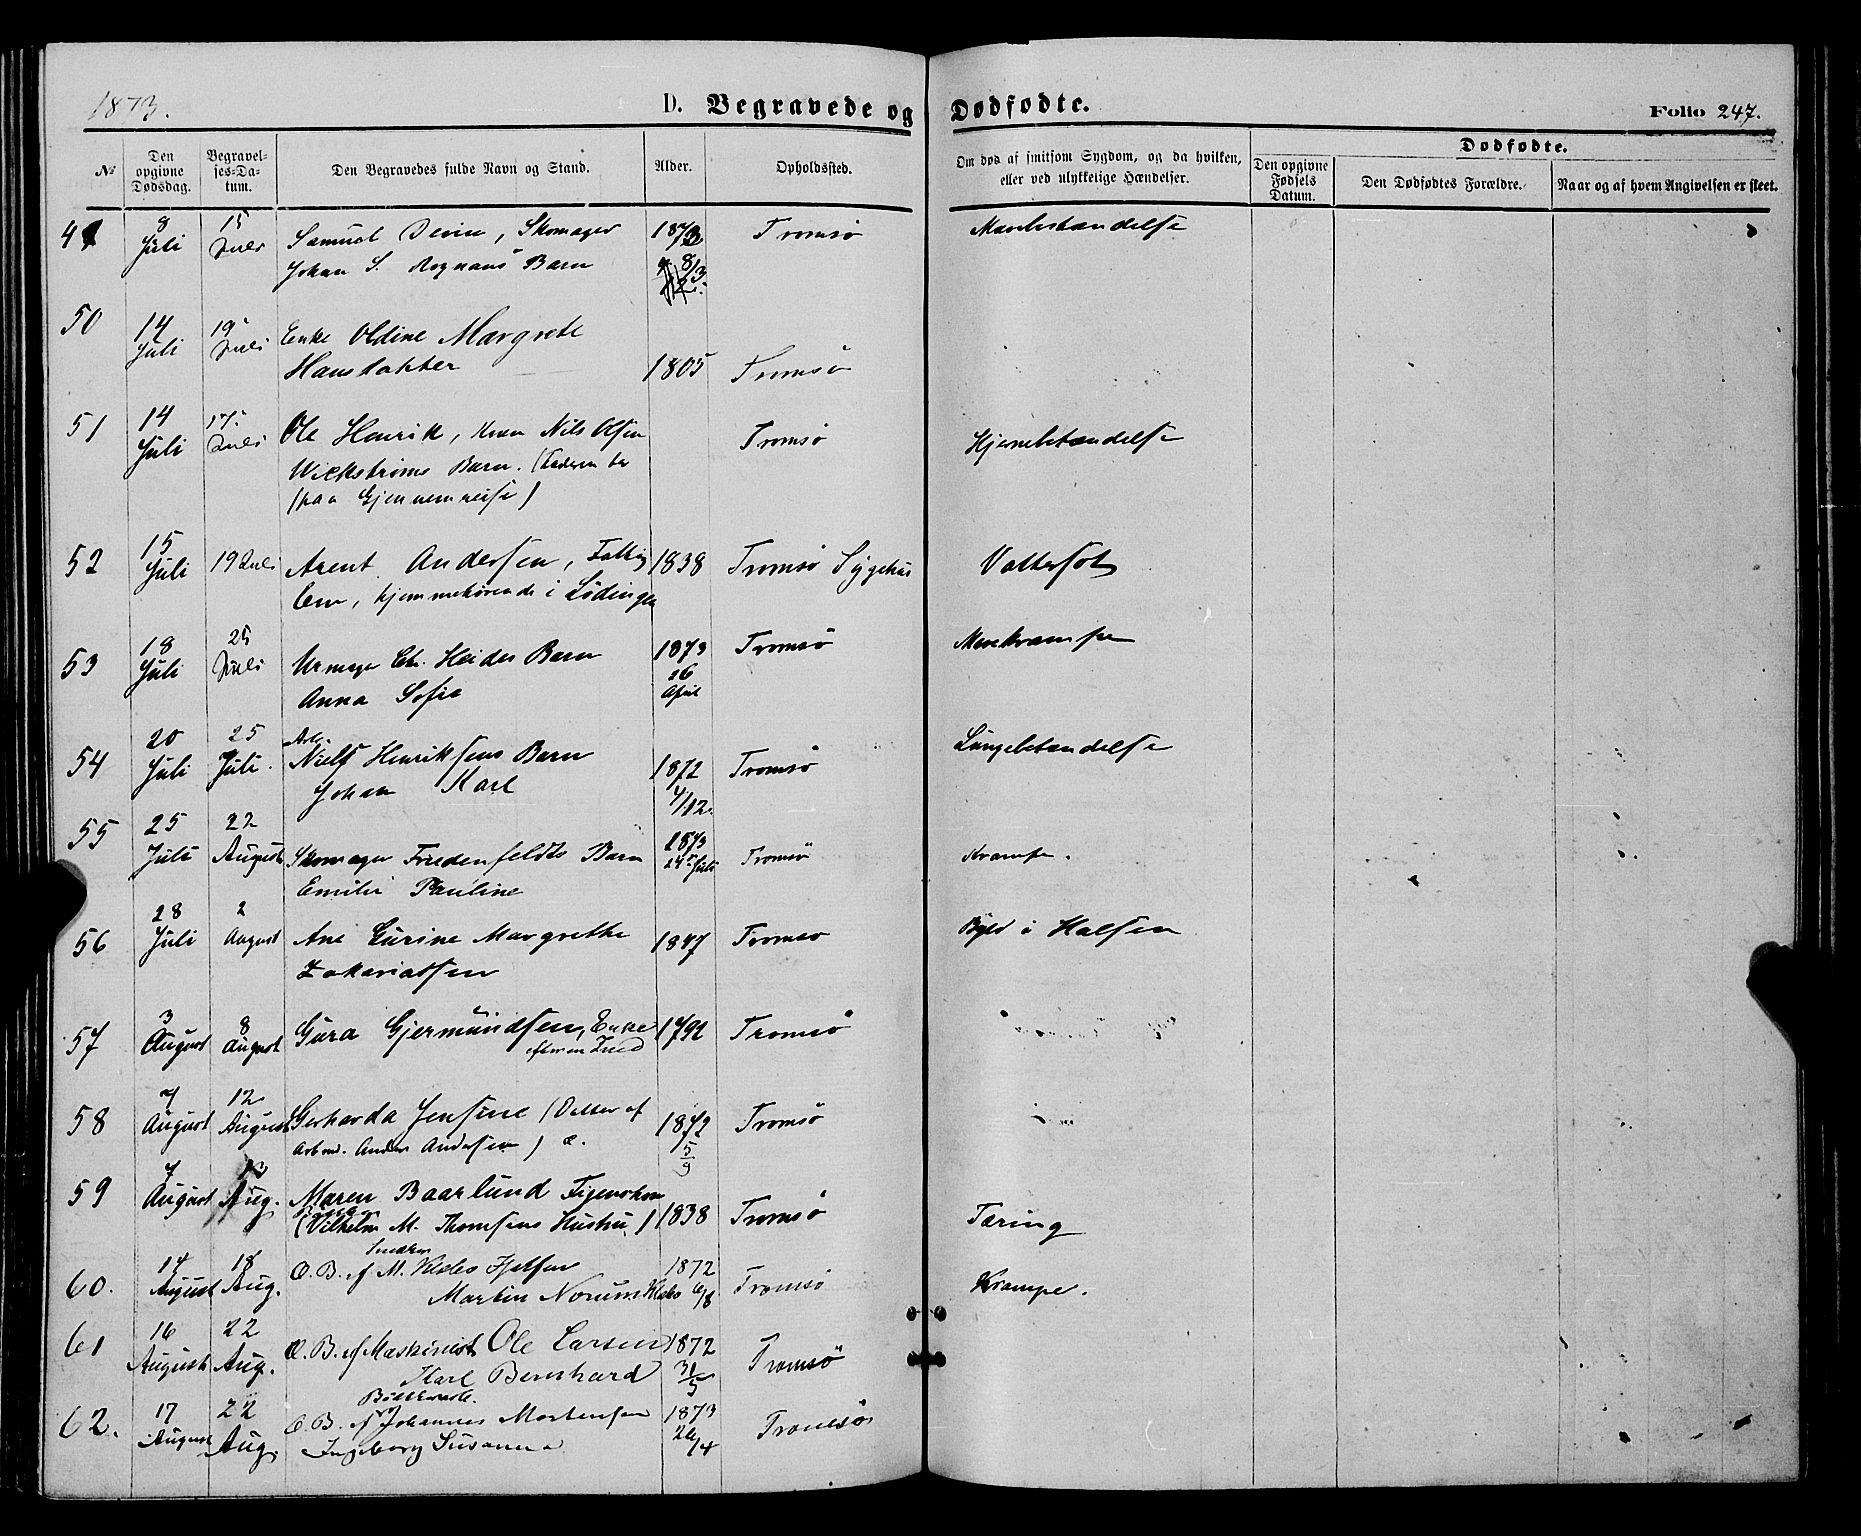 1873.
D. Begravede og Dødfødte.
Folio 247.
№
Den opgivne Dødsdag.
Begravelses-Datum.
Den Begravedes fulde Navn og Stand.
Alder.
Opholdssted.
Om død af smitsom Sygdom, og da hvilken, eller ved ulykkelige Hændelser.
Dødfødte.
Den opgivne Fødsels Datum.
Den Dødfødtes Forældre.
Naar og af hvem Angivelsen er skeet.
8 15
Juli Juli Samuel, Skomager 1873 Tromsø
Johan S. Rognans Barn 8/3
50 14 19 Enke Oldine Margrete
Juli Juli Hansdatter 1805 Tromsø
51 14 17 Ole Henrik, Nils Olsen Tromsø Hjernebetændelse
Juli Juli Wickstrøms Barn.
paa Gjennemreise)
52 15 Juli 19 Juli Arent Andersen, 1838 Tromsø Sygehus Vattersot
hjemmehørende i Lødingen
53 18 25 Urmager Chr. Heides Barn 1873 Tromsø Mavekrampe
Juli Juli Anna Sofie 26 April
54 20 25 Arb.
Juli Juli. Niels Henriksens Barn 1872 Tromsø Lungebetændelse
Johan Karl 4/12.
55 25 22 1873
Juli August Skomager Fredenfeldts Barn 24 Juli Tromsø Krampe.
Emilie Pauline
56 28 2
Juli August Ane Gurine Margrethe 1847 Tromsø Byld i Halsen
Zakariassen
57 3 8
August August Gura Gjermundsen, Enke 1792 Tromsø
58 7 12
August August Gerharda Jensine (Datter af 1872 Tromsø
Arbmd. Anders Andersen) æ. 5/9
59 7 13
August Aug. Maren Baarlund Figenschou
(Vilhelm M. Thomsens Hustru) 1838 Tromsø Tæring
60. 14 18
August Aug. Æ. B. af M. Klæbo 1872 Tromsø Krampe.
Martin Norum Klæbo 6/8
61 16 22
August Aug. Æ. B. af Maskinist Ole Larsen 1872 Tromsø
Karl Bernhard 31/5
62. 17 22
August Aug. Æ. B. af Johannes Mortensen 1873 Tromsø
Ingeborg Susanna 26/4